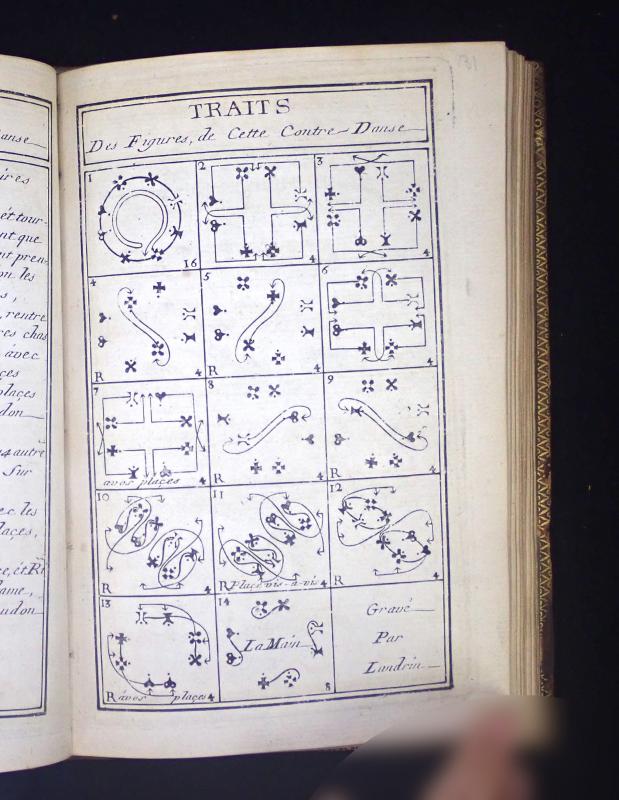 TRAITS
Des Figures, de Cette Contre-Danse
1
16
2
4
3
4
4
R
4
5
R
4
6
4
7
avos places
4
8
R
4
9
R
4
10
R
4
11
R Place vis-à-vis
4
12
R
4
13
R àvos places 4
14
La Main
8
Gravé
Par
Landrin
anse
ires
ét tour-
nt que
nt pren-
ou les
s,
, rentre
res chas
avec
ces
places
don
4 autre
Sur
ec les
laces,
ce, ét R
ame,
udon